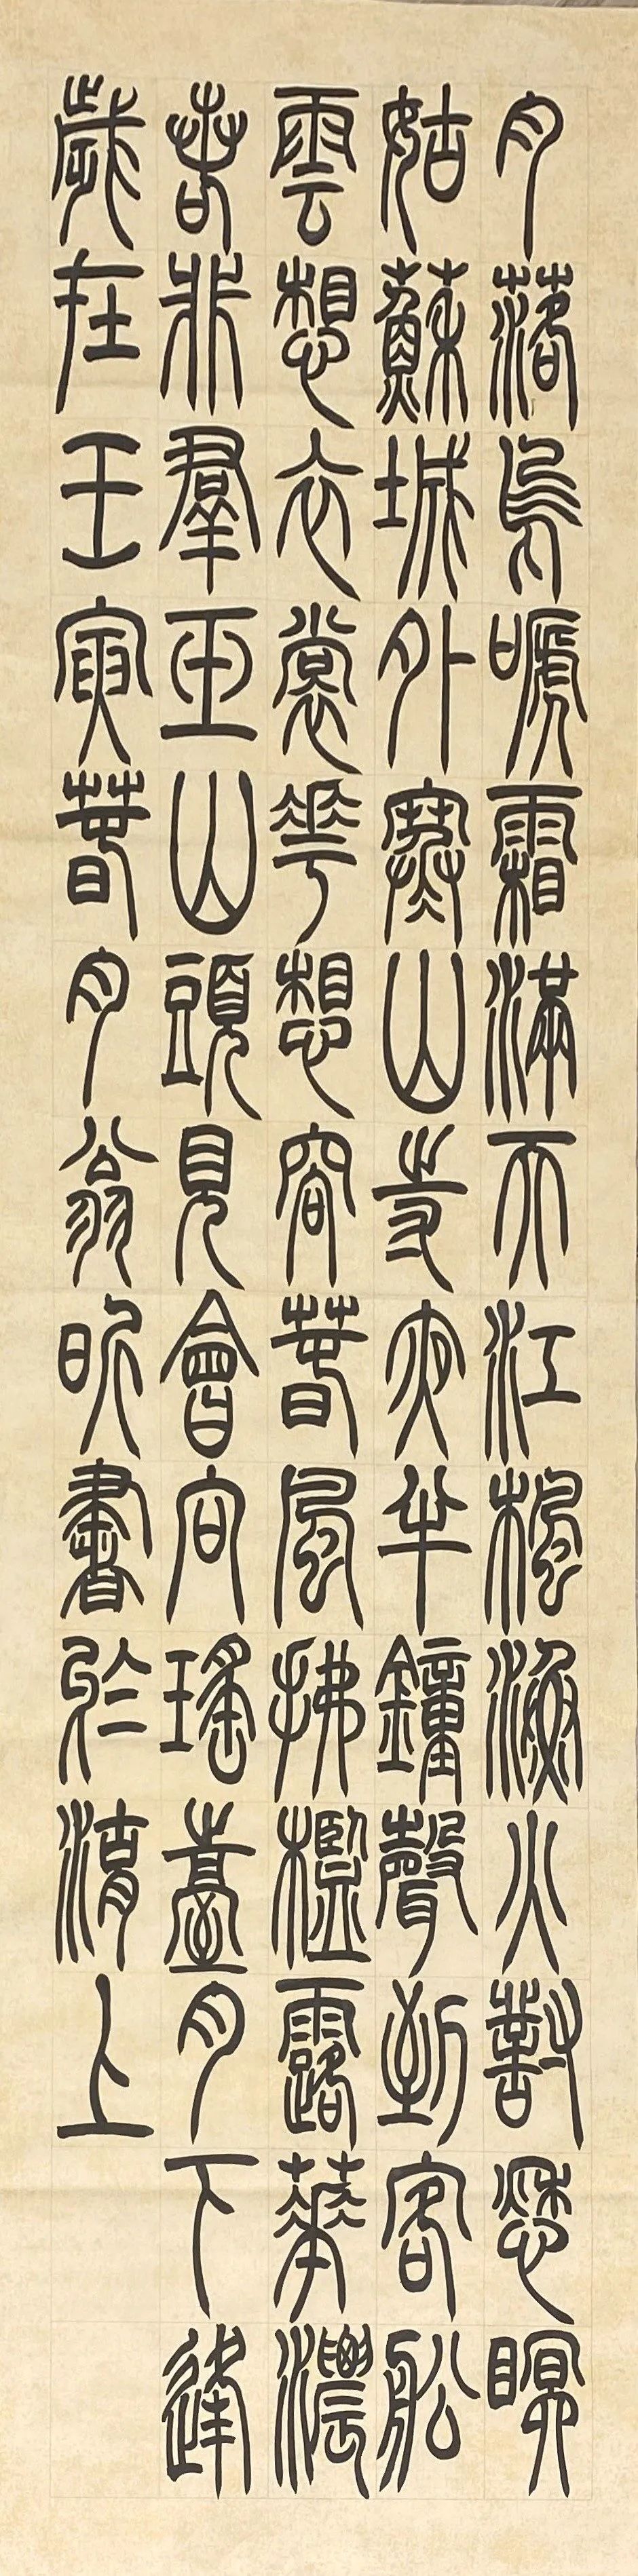 月落烏嗁霜滿天江楓漁火對愁瞑
姑蘇城外寒山寺夜半鐘聲到客船
雲想衣裳花想容春風拂檻露華濃
若非羣玉山頭見會向瑤臺月下逢
歲在壬寅春月翁昕書於淯上